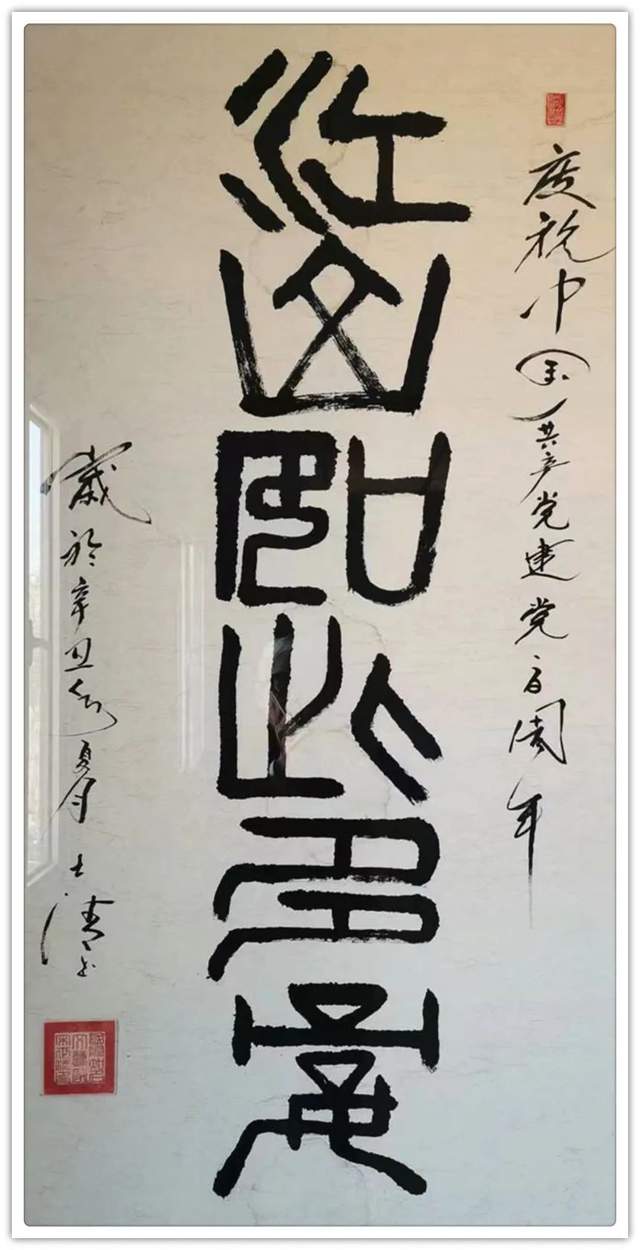 庆祝中国共产党建党百周年
江山如此多嬌
歲於辛丑夏月士清书